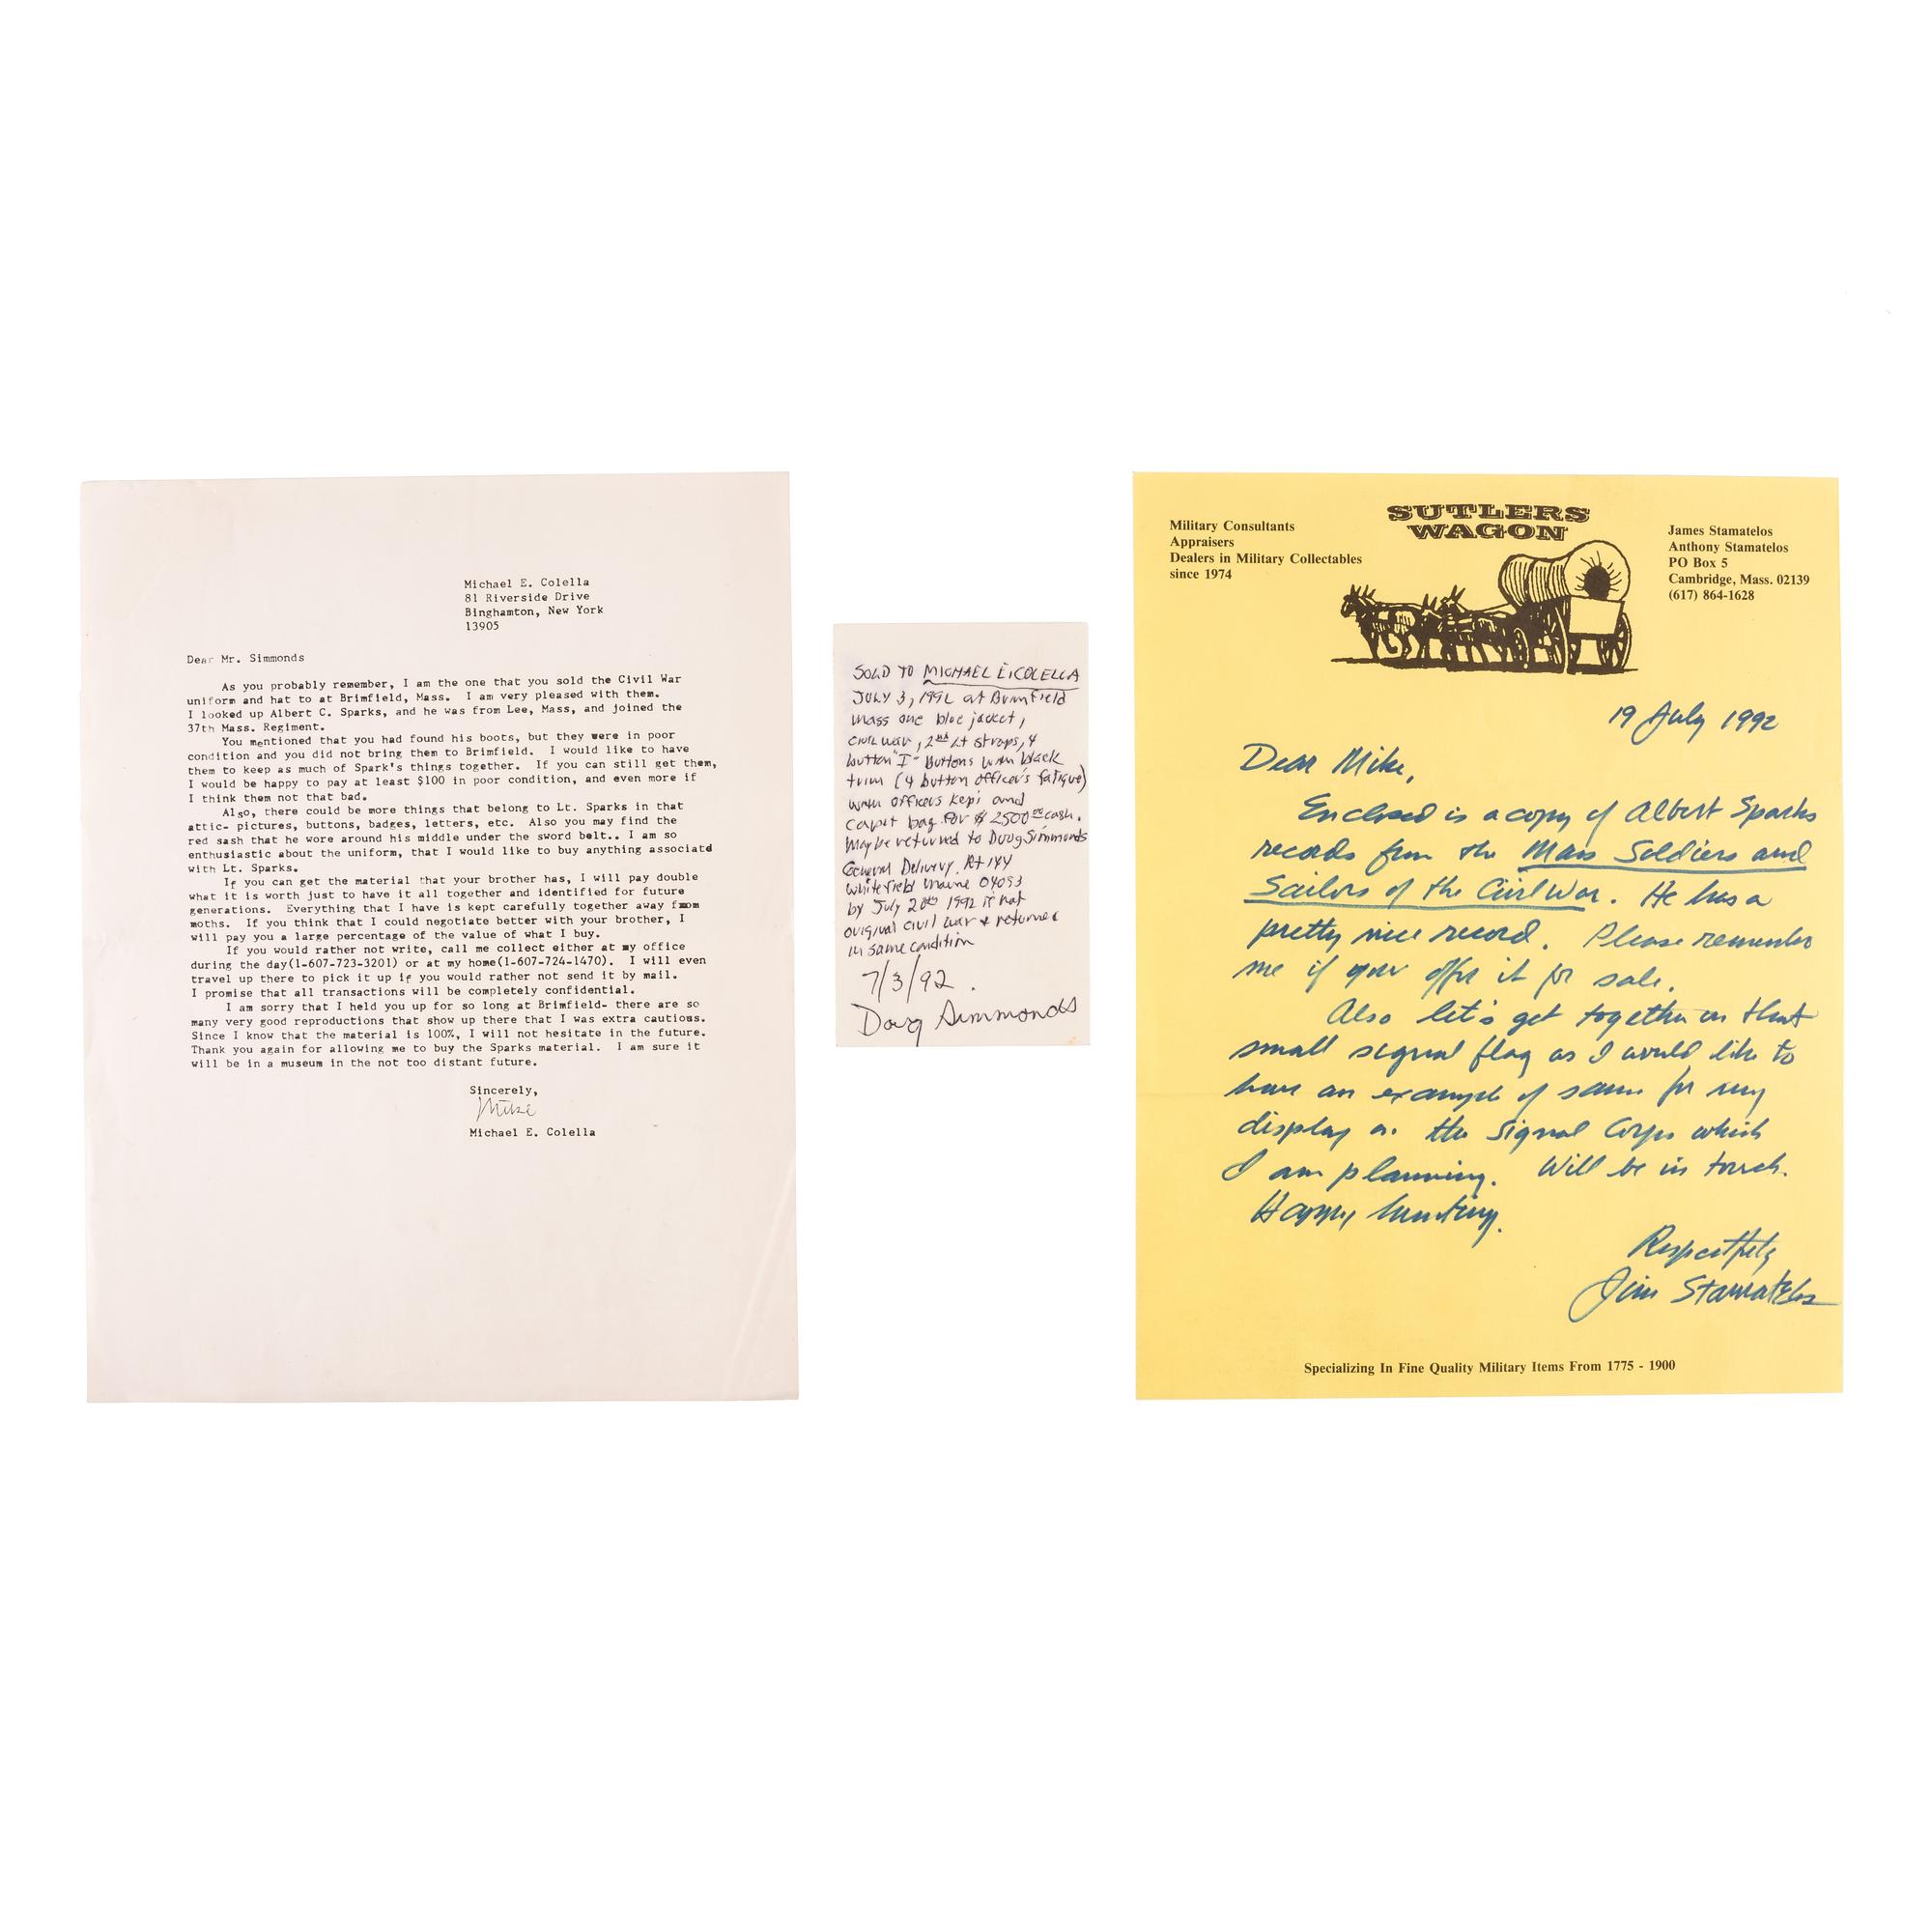 Michael E. Colella
81 Riverside Drive
Binghamton, New York
13905
Dear Mr. Simmonds
As you probably remember, I am the one that you sold the Civil War
uniform and hat to at Brimfield, Mass. I am very pleased with them.
I looked up Albert C. Sparks, and he was from Lee, Mass, and joined the
37th Mass. Regiment.
You mentioned that you had found his boots, but they were in poor
condition and you did not bring them to Brimfield. I would like to have
them to keep as much of Spark's things together. If you can still get them,
I would be happy to pay at least $100 in poor condition, and even more if
I think them not that bad.
Also, there could be more things that belong to Lt. Sparks in that
attic- pictures, buttons, badges, letters, etc. Also you may find the
red sash that he wore around his middle under the sword belt.. I am so
enthusiastic about the uniform, that I would like to buy anything associatd
with Lt. Sparks.
If you can get the material that your brother has, I will pay double
what it is worth just to have it all together and identified for future
generations. Everything that I have is kept carefully together away from
moths. If you think that I could negotiate better with your brother, I
will pay you a large percentage of the value of what I buy.
If you would rather not write, call me collect either at my office
during the day(1-607-723-3201) or at my home(1-607-724-1470). I will even
travel up there to pick it up if you would rather not send it by mail.
I promise that all transactions will be completely confidential.
I am sorry that I held you up for so long at Brimfield- there are so
many very good reproductions that show up there that I was extra cautious.
Since I know that the material is 100%, I will not hesitate in the future.
Thank you again for allowing me to buy the Sparks material. I am sure it
will be in a museum in the not too distant future.
Sincerely,
Mike
Michael E. Colella
SOLD TO MICHAEL E. COLELLA
JULY 3, 1992 at Brimfield
mass one blue jacket,
civil war, 2nd Lt straps, 4
button "I" buttons with black
trim (4 button officer's fatigue)
with officers kepi and
carpet bag for $2500.00 cash.
May be returned to Doug Simmonds
General Delivery. Rt 144
Whitefield Maine 04093
by July 20th 1992 if not
original civil war & returned
in same condition
7/3/92.
Doug Simmonds
SUTLERS
WAGON
Military Consultants
Appraisers
Dealers in Military Collectables
since 1974
James Stamatelos
Anthony Stamatelos
PO Box 5
Cambridge, Mass. 02139
(617) 864-1628
19 July 1992
Dear Mike,
Enclosed is a copy of Albert Sparks
records from the Mass Soldiers and
Sailors of the Civil War. He has a
pretty nice record. Please remember
me if you offer it for sale.
Also let's get together on that
small signal flag as I would like to
have an example of same for my
display on the Signal Corps which
I am planning. Will be in touch.
Happy hunting.
Respectfully
Jim Stamatelos
Specializing In Fine Quality Military Items From 1775 - 1900